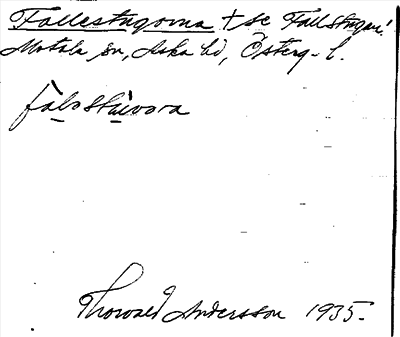 Fallestugorna † se Fallstugan!
Motala sn, Aska hd, Österg. l.
falostuwora
Thorwald Andersson 1935.